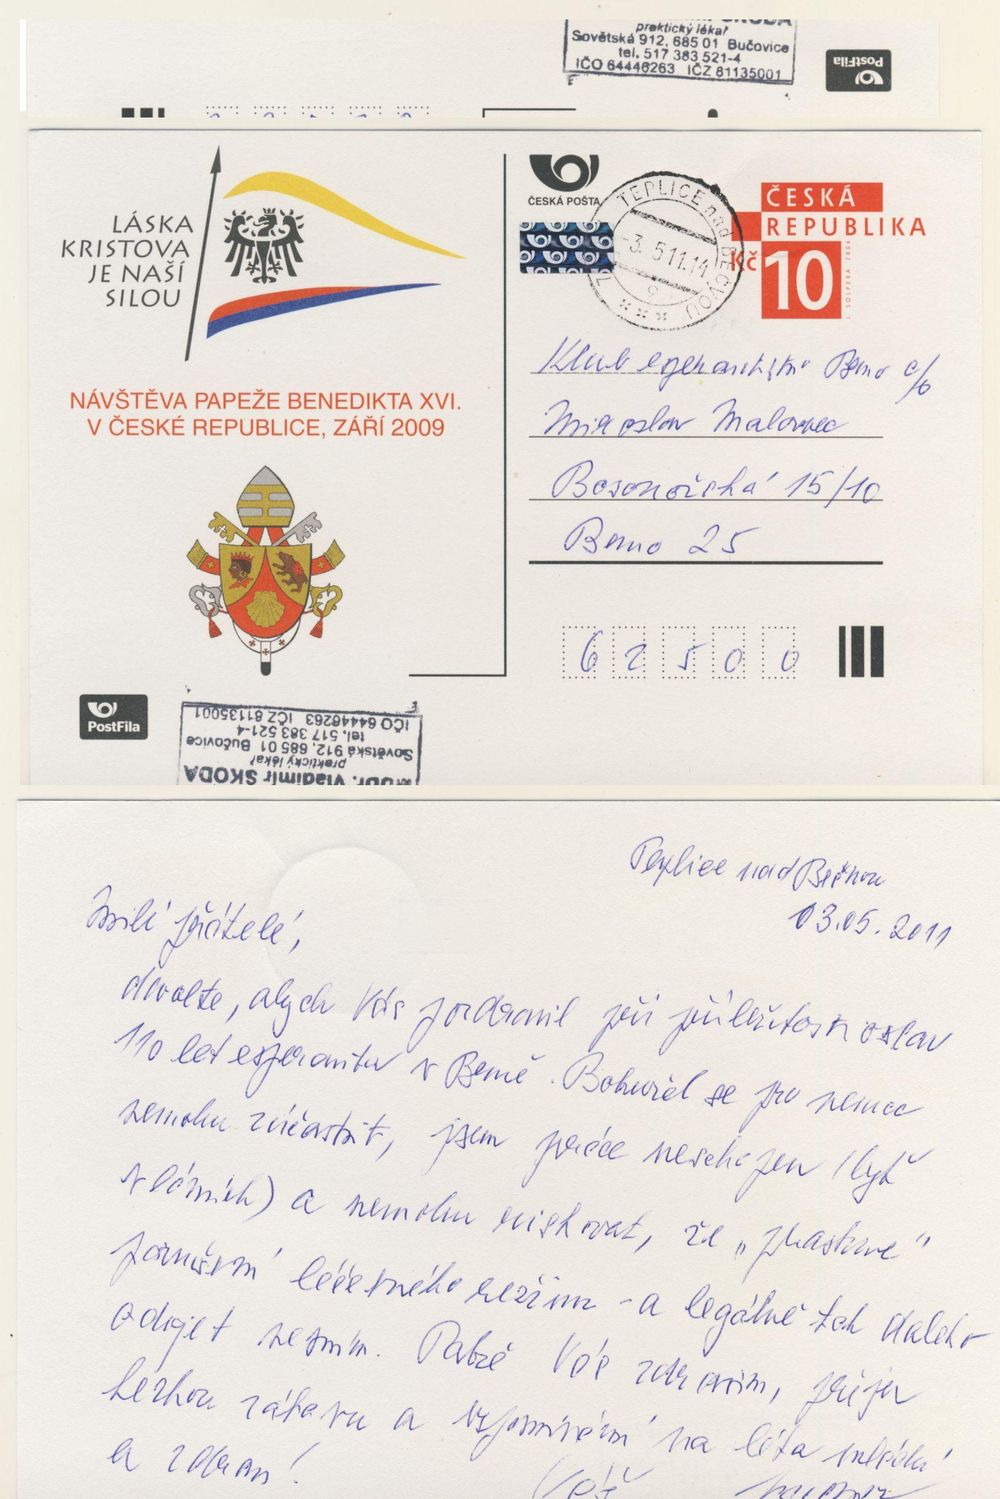 praktický lékař
Sovětská 912, 685 01 Bučovice
tel. 517 383 521-4
IČO 64446263 IČZ 81135001
PostFila
LÁSKA
KRISTOVA
JE NAŠÍ
SILOU
ČESKÁ POŠTA
TEPLICE nad BEČVOU
-3. 5 11.14
ČESKÁ
REPUBLIKA
Kč 10
NÁVŠTĚVA PAPEŽE BENEDIKTA XVI.
V ČESKÉ REPUBLICE, ZÁŘÍ 2009
Klub esperantistů Brno c/o
Miroslav Malovec
Bosonožská 15/10
Brno 25
62500
PostFila
MUDr. Vladimír ŠKODA
praktický lékař
Sovětská 912, 685 01 Bučovice
tel. 517 383 521-4
IČO 64446263 IČZ 81135001
Teplice nad Bečvou
03.05.2011
Milí přátelé,
dovolte, abych Vás pozdravil při příležitosti oslav
110 let esperanta v Brně. Bohužel se pro nemoc
nemohu zúčastnit, jsem práce neschopen (byť
v lázních) a nemohu riskovat, že „prasknu“
porušení léčebného režimu - a legálně tak daleko
odjet nesmím. Takže Vás zdravím, přeju
hezkou zábavu a vzpomínání na léta mladá
a zdraví!
Váš